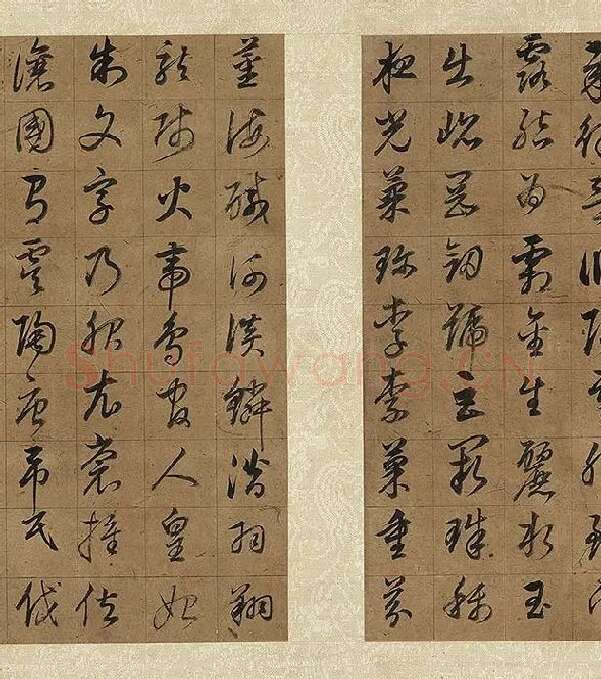 露結為霜金生麗水玉
出崑岡劍號巨闕珠稱
夜光菓珍李柰菜重芥
薑海鹹河淡鱗潛羽翔
龍師火帝鳥官人皇始
制文字乃服衣裳推位
讓國有虞陶唐弔民伐
Shufawang.CN